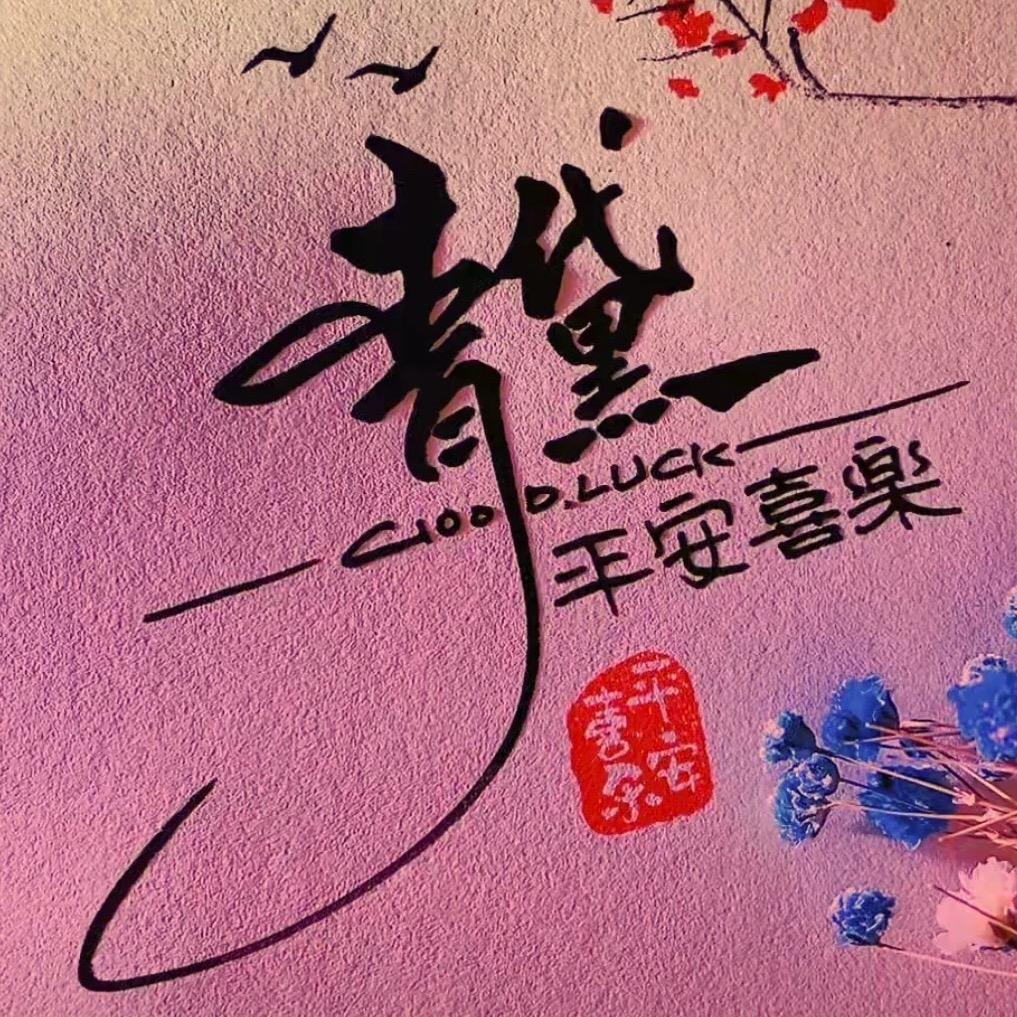 青黛
GOOD.LUCK
平安喜樂
平安
喜乐